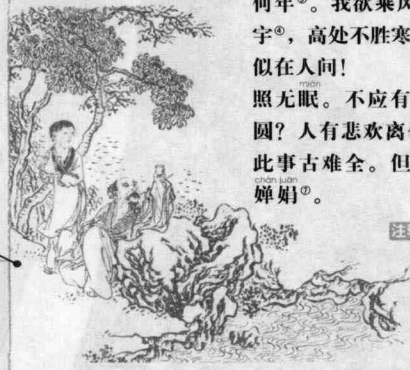 何年②。我欲乘风
宇④，高处不胜寒
似在人间！
mián
照无眠。不应有
圆？人有悲欢离
此事古难全。但
chán juān
婵娟⑦。
注